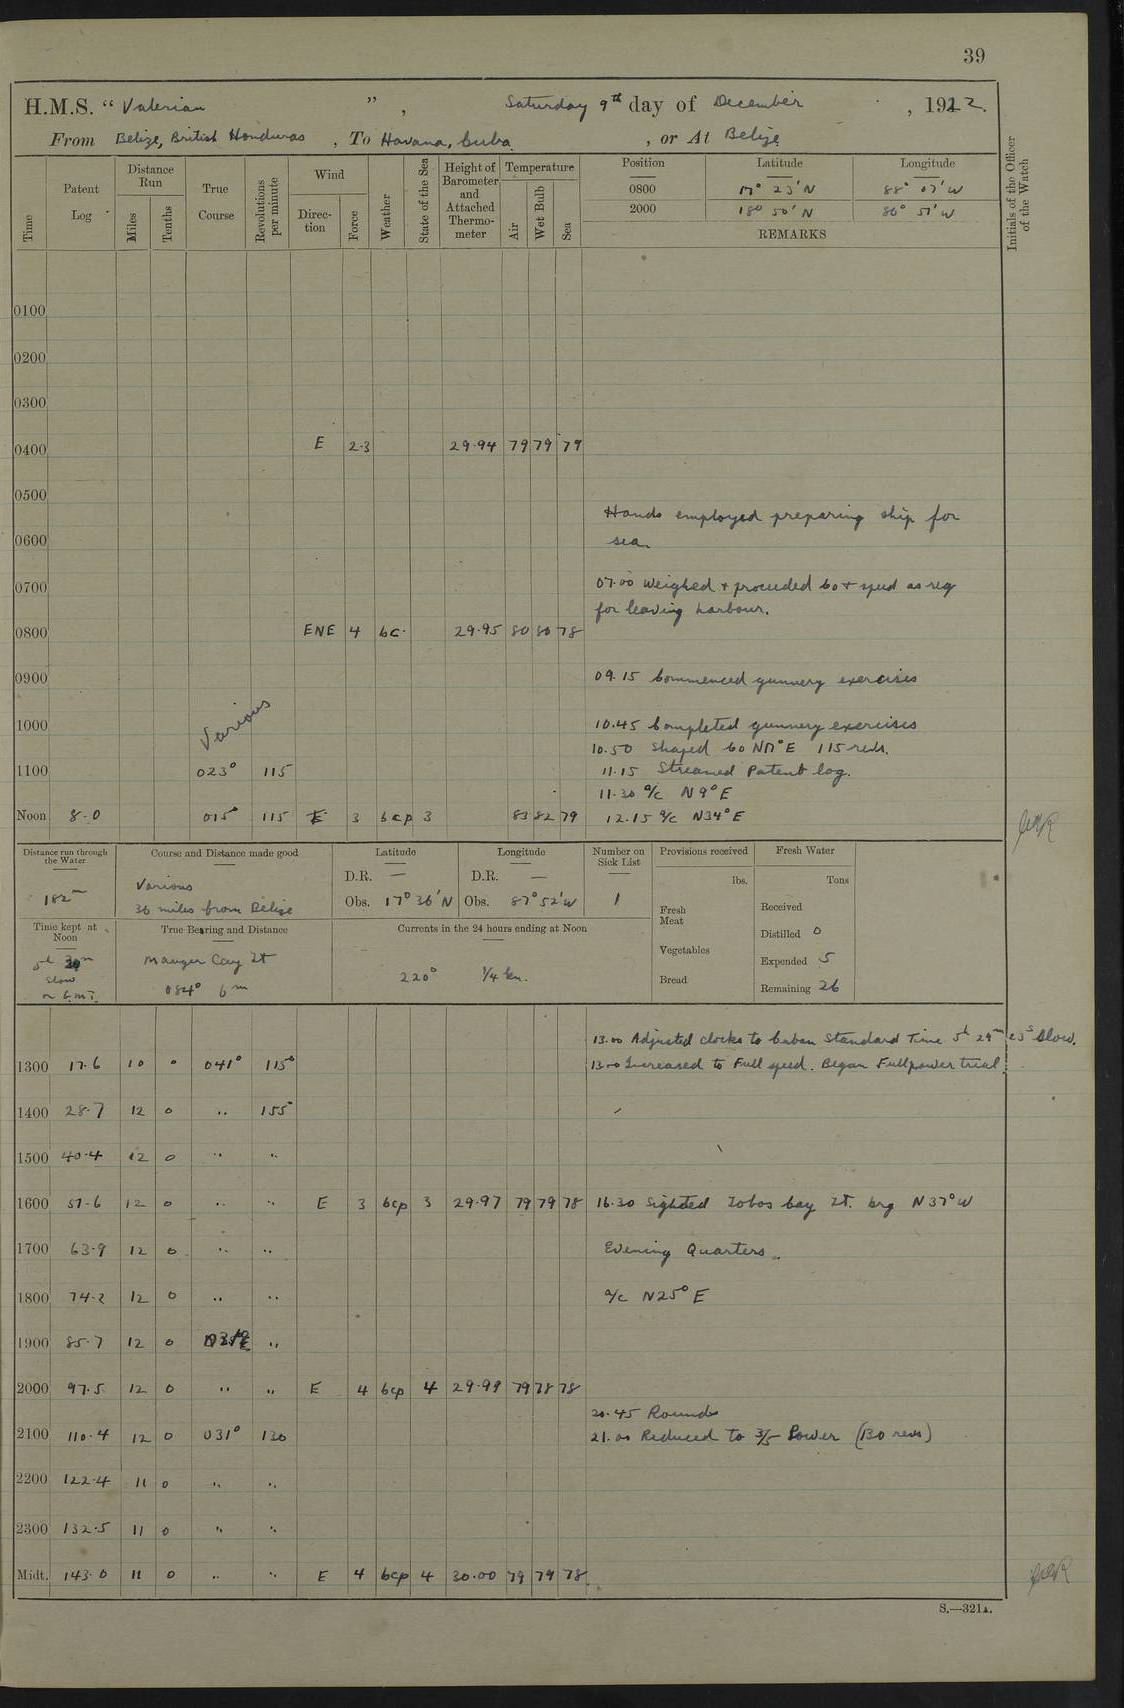 39
H.M.S. “ Valerian ” , Saturday 9th day of December , 1922.
From Belize, British Honduras , To Havana, Cuba , or At Belize
Time Patent Log Distance Run Miles Tenths True Course Revolutions per minute Wind Direction Force Weather State of the Sea Height of Barometer and Attached Thermometer Temperature Air Wet Bulb Sea Position Latitude Longitude Initials of the Officer of the Watch
0800 17° 23' N 88° 07' W
2000 18° 50' N 86° 51' W
REMARKS
0100
0200
0300
0400 E 2-3 29.94 79 79 79
0500
Hands employed preparing ship for
0600 sea.
0700 07.00 Weighed + proceeded Co + speed as req
for leaving harbour.
0800 ENE 4 bc. 29.95 80 80 78
0900 09.15 Commenced gunnery exercises
1000 Various 10.45 Completed gunnery exercises
10.50 Shaped Co N17°E 115 revs.
1100 023° 115 11.15 Streamed Patent log.
11.30 a/c N9°E
Noon 8.0 015° 115 E 3 bcp 3 83 82 79 12.15 a/c N34°E
Distance run through the Water Course and Distance made good Latitude Longitude Number on Sick List Provisions received Fresh Water
182m Various D.R. — D.R. — lbs. Tons
36 miles from Belize Obs. 17° 36' N Obs. 87° 52' W 1 Fresh Meat Received
Time kept at Noon True Bearing and Distance Currents in the 24 hours ending at Noon Distilled 0
5h slow on G.M.T. Mauger Cay Lt 220° 1/4 kn. Vegetables Expended 5
084° 6m Bread Remaining 26
13.00 Adjusted clocks to Cuban Standard Time 5h 29m 25s Slow.
1300 17.6 10 0 041° 115 13.00 Increased to Full speed. Began Fullpower trial
1400 28.7 12 0 .. 155
1500 40.4 12 0 .. ..
1600 51.6 12 0 .. .. E 3 bcp 3 29.97 79 79 78 16.30 Sighted Lobos Cay Lt. brg N37°W
1700 63.9 12 0 .. .. Evening Quarters.
1800 74.2 12 0 .. .. a/c N25°E
1900 85.7 12 0 ..
2000 97.5 12 0 .. .. E 4 bcp 4 29.99 79 78 78
20.45 Rounds
2100 110.4 12 0 031° 130 21.00 Reduced to 3/5 Power (130 revs)
2200 122.4 11 0 .. ..
2300 132.5 11 0 .. ..
Midt. 143.0 11 0 .. .. E 4 bcp 4 30.00 79 79 78
S.—321A.